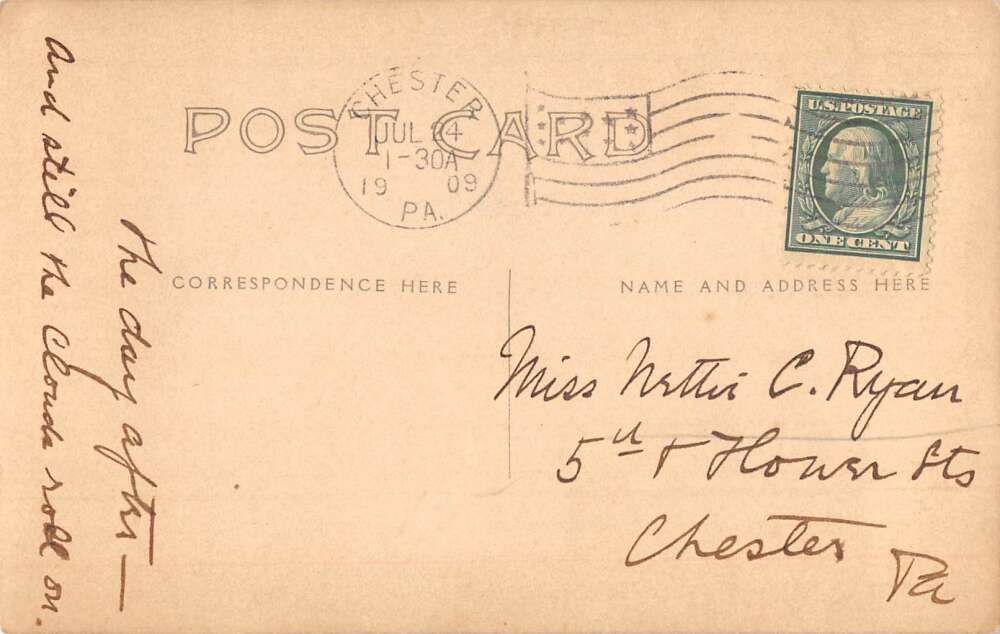 POST CARD
CHESTER
JUL 24
1-30A
19 09
PA.
U.S. POSTAGE
ONE CENT
CORRESPONDENCE HERE
NAME AND ADDRESS HERE
The day after —
and still the clouds roll on.
Miss Nettie C. Ryan
5th & Flower Sts
Chester
Pa